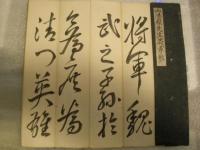 將軍魏
武之子孫於
今為庶為
清門英雄